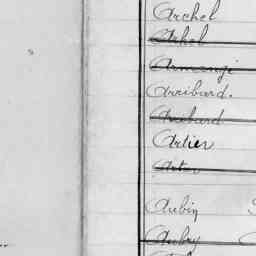 Archel
Arhel
Armengi
Arribard.
Arribard
Artier
Artus
Aubin
Aubry